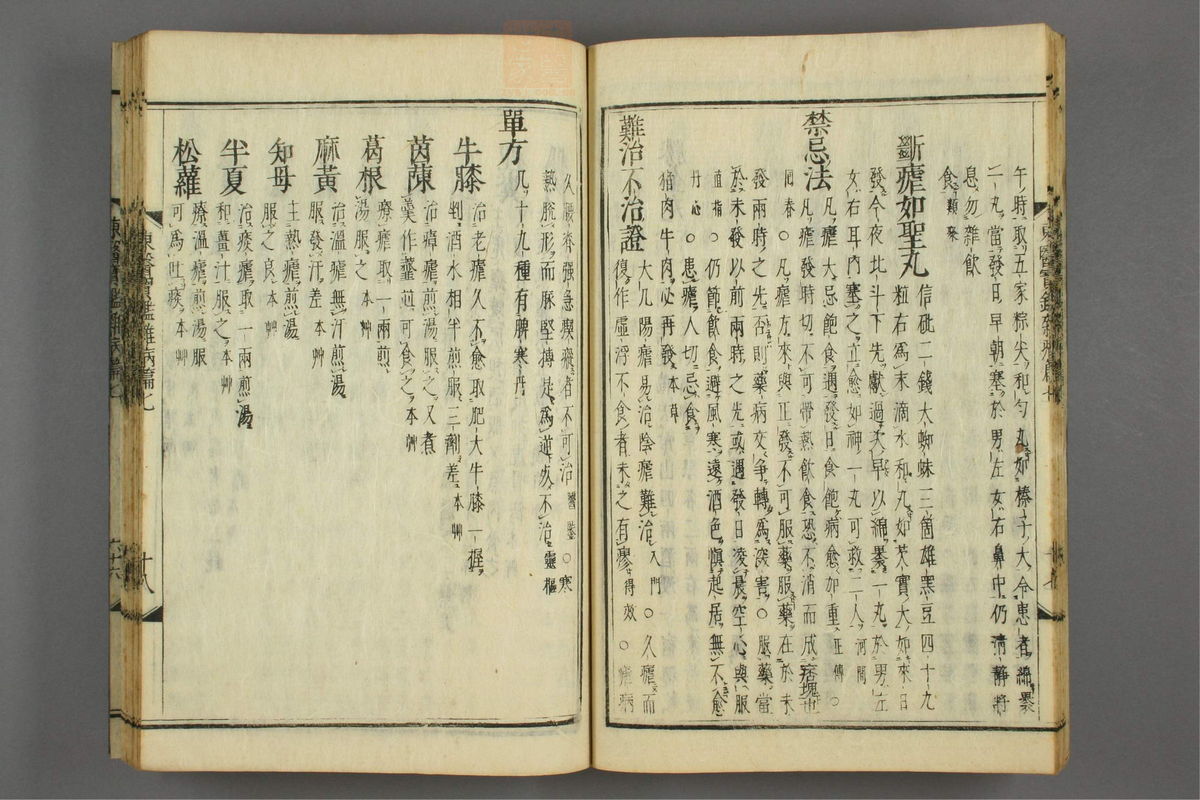 午時取五家粽尖和勻丸如榛子大令患者綿裹
一丸當發日早朝塞於男左女右鼻中仍淸靜將
息勿雜飮
食類聚
斷瘧如聖丸 信砒二錢大蜘蛛三箇雄黑豆四十九
粒右爲末滴水和丸如芡實大如來日
發今夜北斗下先獻過次早以綿裹一丸於男左
女右耳內塞之立愈如神一丸可救二人河間
禁忌法 凡瘧大忌飽食遇發日食飽病愈加重正傳○
凡瘧發時切不可帶熱飮食恐不消而成痞塊也
同春○凡瘧方來與正發不可服藥服藥在於未
發兩時之先否則藥病交爭轉爲深害○服藥當
於未發以前兩時之先或遇發日凌晨空心與服
直指○仍節飮食避風寒遠酒色愼起居無不愈
丹心○患瘧人切忌食
猪肉牛肉必再發本草
難治不治證 大凡陽瘧易治陰瘧難治入門○久瘧而
復作虛浮不食者未之有瘳得效○瘧病
久腰脊强急瘈瘲者不可治醫鑒○寒
熱脫形而脉堅搏是爲逆病不治靈樞
單方 凡十九種有脾寒丹
牛膝 治老瘧久不愈取肥大牛膝一握
剉酒水相半煎服三劑差本艸
茵蔯 治瘴瘧煎湯服之又煮
羹作虀並可食之本艸
葛根 療瘧取一兩煎
湯服之本艸
麻黃 治溫瘧無汗煎湯
服發汗差本艸
知母 主熱瘧煎湯
服之良本艸
半夏 治痰瘧取一兩煎湯
和薑汁服之本艸
松蘿 療溫瘧煎湯服
可爲吐痰本艸
東醫寶鑑雜病篇七
十八